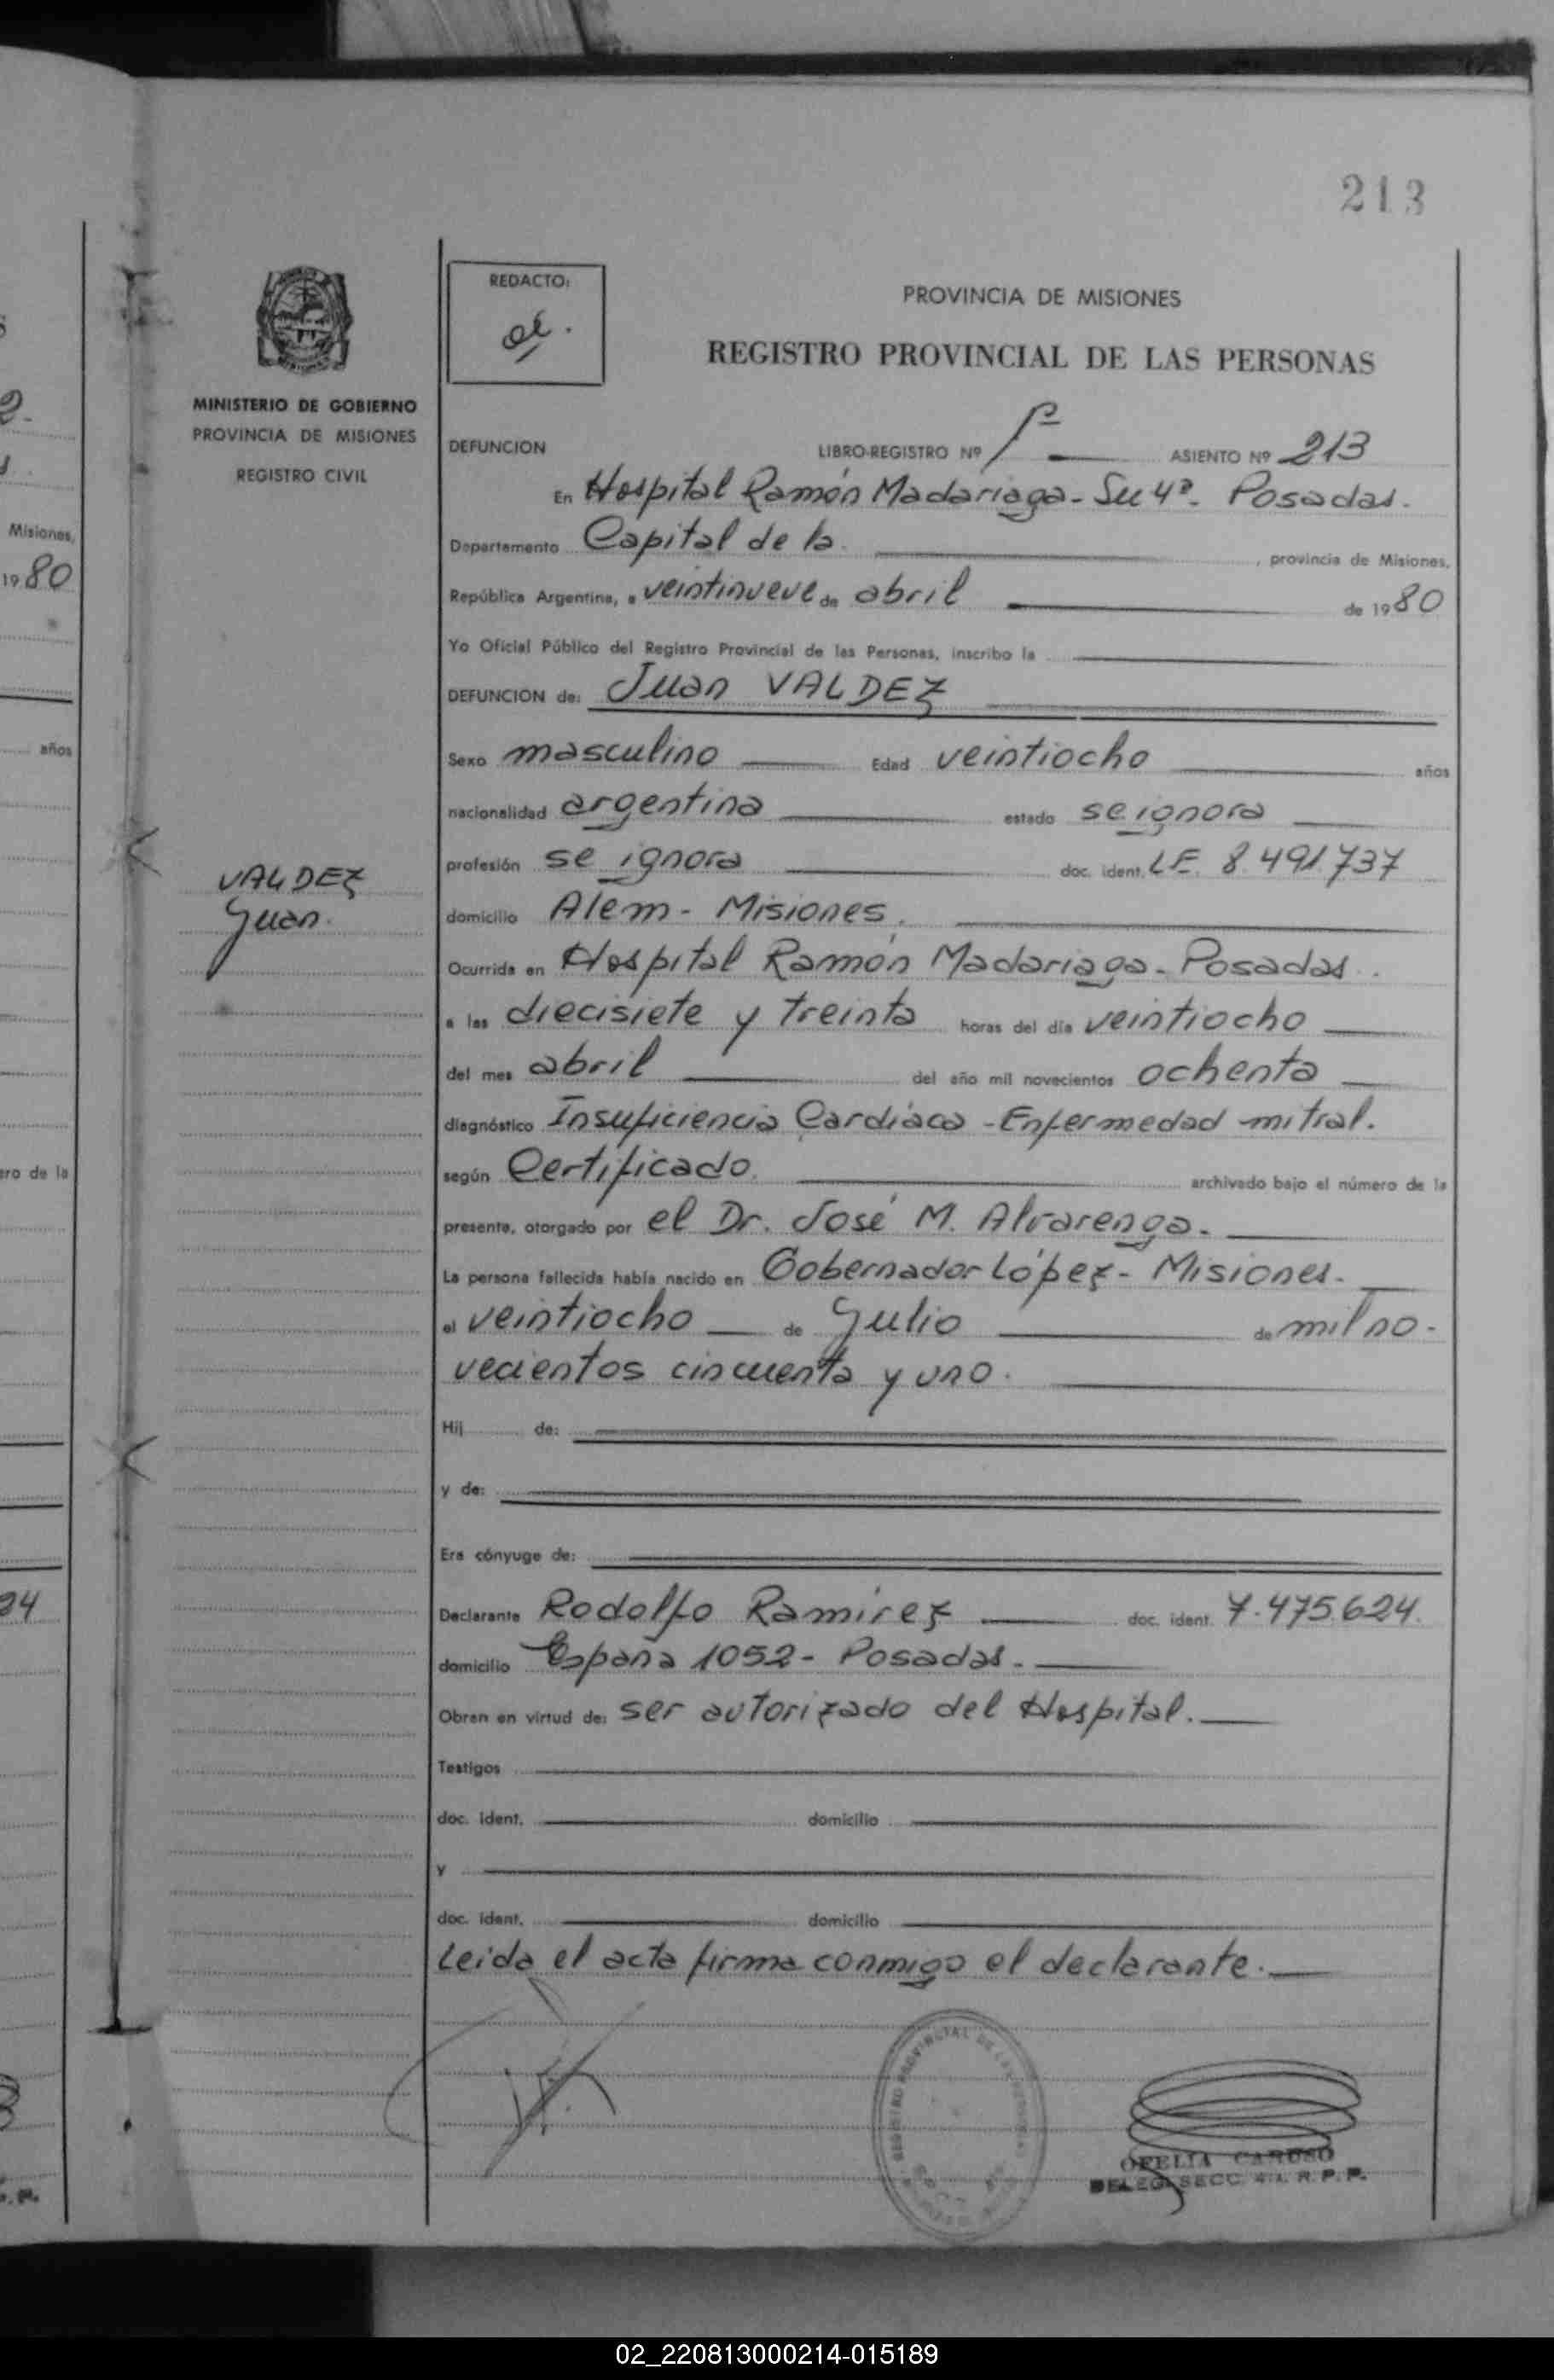 213
REDACTO:
PROVINCIA DE MISIONES
REGISTRO PROVINCIAL DE LAS PERSONAS
MINISTERIO DE GOBIERNO
PROVINCIA DE MISIONES
REGISTRO CIVIL
DEFUNCION LIBRO-REGISTRO Nº 1º ASIENTO Nº 213
En Hospital Ramón Madariaga - Su 4ª - Posadas.
Departamento Capital de la , provincia de Misiones,
República Argentina, a veintinueve de abril de 1980
Yo Oficial Público del Registro Provincial de las Personas, inscribo la
DEFUNCION de: Juan VALDEZ
Sexo masculino Edad veintiocho años
nacionalidad argentina estado se ignora
profesión se ignora doc. ident. L.E. 8.491.737
VALDEZ
Juan.
domicilio Alem - Misiones.
Ocurrida en Hospital Ramón Madariaga - Posadas.
a las diecisiete y treinta horas del día veintiocho
del mes abril del año mil novecientos ochenta
diagnóstico Insuficiencia Cardíaca - Enfermedad mitral.
según Certificado. archivado bajo el número de la
presente, otorgado por el Dr. José M. Alvarenga.
La persona fallecida había nacido en Gobernador López - Misiones.
el veintiocho de Julio de mil no-
vecientos cincuenta y uno.
Hij de:
y de:
Era cónyuge de:
Declarante Rodolfo Ramírez doc. ident. 7.475.624.
domicilio España 1052 - Posadas.
Obran en virtud de: ser autorizado del Hospital.
Testigos
doc. ident. domicilio
y
doc. ident. domicilio
Leida el acta firma conmigo el declarante.
OFELIA CARUSO
DELEG. SECC. 4ta. R. P. P.
Misiones,
1980
años
ero de la
02_220813000214-015189